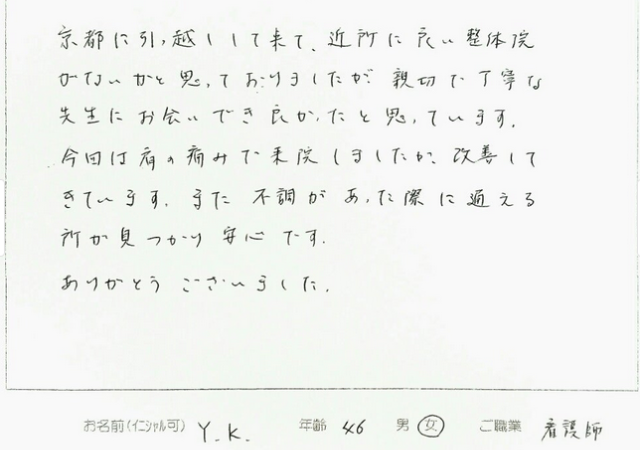 京都に引っ越しして来て、近所に良い整体院
がないかと思っておりましたが、親切で丁寧な
先生にお会いでき良かったと思っています。
今回は肩の痛みで来院しましたが、改善して
きています。また不調があった際に通える
所が見つかり安心です。
ありがとうございました。
お名前(イニシャル可) Y.K. 年齢 46 男 女 ご職業 看護師